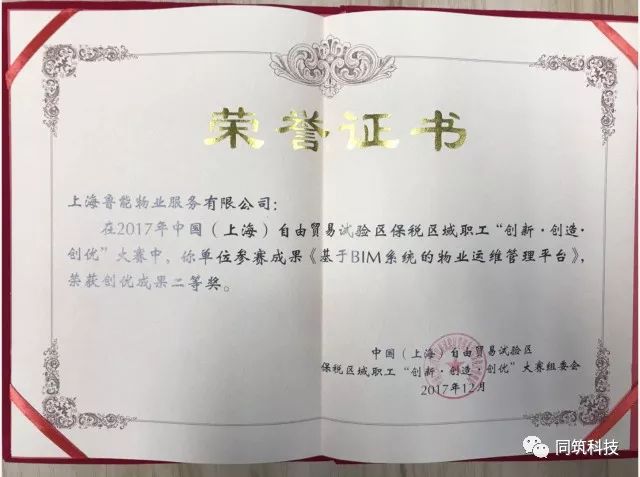 荣誉证书
上海鲁能物业服务有限公司：
在2017年中国（上海）自由贸易试验区保税区域职工“创新·创造·
创优”大赛中，你单位参赛成果《基于BIM系统的物业运维管理平台》，
荣获创优成果二等奖。
中国（上海）自由贸易试验区
保税区域职工“创新·创造·创优”大赛组委会
2017年12月
同筑科技